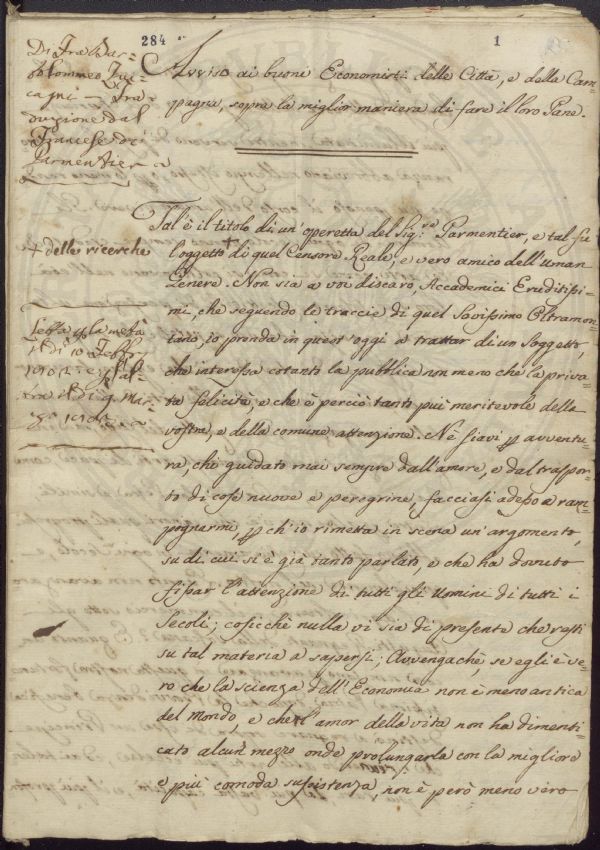 284
1
Di Fra Bar=
tolommeo Fru=
cagni — Tra=
duzione dal
Francese di
Parmentier
Avviso ai buoni Economisti delle Città, e della Cam=
pagna, sopra la miglior maniera di fare il loro Pane.
+ delle ricerche
Tal'è il titolo di un'operetta del Sig.re Parmentier, e tal fu
l'oggetto + di quel Censore Reale, e vero amico dell'Uman
Genere. Non sia a voi discaro, Accademici Eruditissi=
mi, che seguendo le traccie di quel Savissimo Oltramon=
tano, io prenda in quest'oggi a trattar di un Soggetto,
che interessa cotanto la pubblica non meno che la priva=
ta felicità, e che è perciò tanto più meritevole della
vostra, e della comune attenzione. Nè siavi p avventu=
ra, chi guidato mai sempre dall'amore, e dal traspor=
to di cose nuove e peregrine, facciasi adesso a ram=
pognarmi, p ch'io rimetta in scena un'argomento,
su di cui si è già tanto parlato, e che ha dovuto
fissar l'attenzione di tutti gli Uomini di tutti i
Secoli; cosicchè nulla vi sia di presente che resti
su tal materia a sapersi; Avvengachè, se egli è ve=
ro che la scienza dell'Economia non è meno antica
del Mondo, e che l'amor della vita non ha dimenti=
cato alcun mezzo onde prolungarla con la migliore
e più comoda sussistenza, non è però meno vero
Letta p la metà
il dì 10 Febb.
e p l'al=
tra il dì 9 Mar=